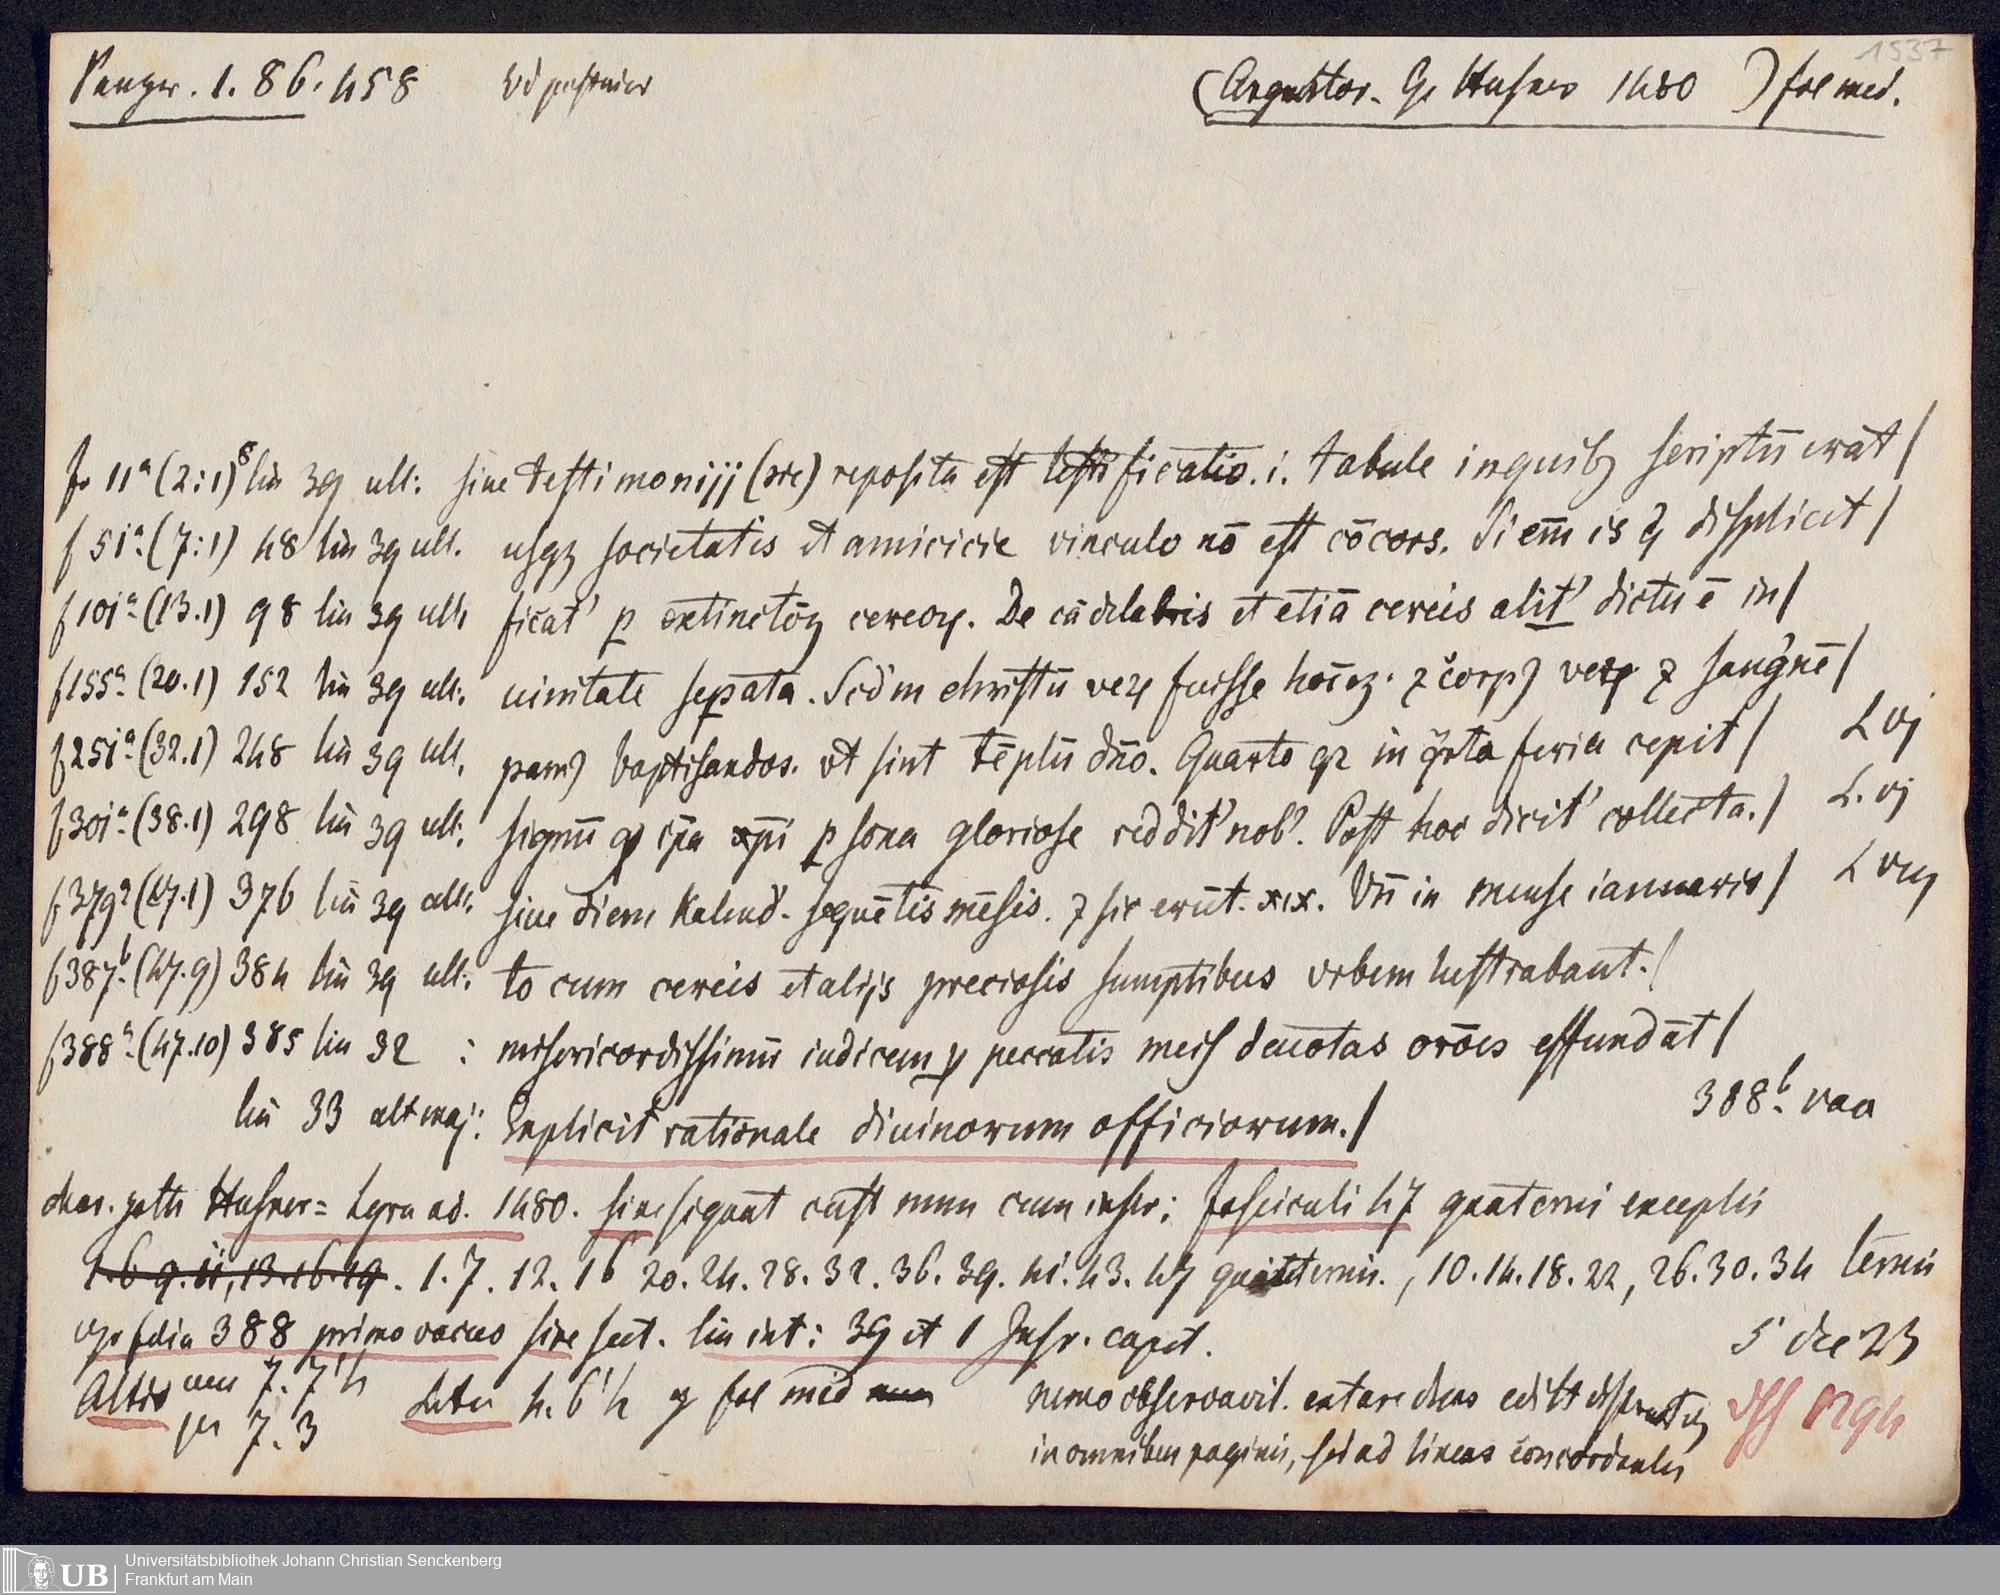 1537
Panzer. 1. 86. 458
(Argentor. G. Husner 1480 ) fol med.
f. 11ᵃ (2:1) 8 lin 39 ult: siue testimonijj (sic) reposita est testificatio. i. tabule inquibꝫ scriptū erāt /
f 51ᵃ (7:1) 48 lin 39 ult. usqꝫ societatis et amicicie vinculo nō est cōcors. Si em̄ is q̄ displicet /
f 101ᵃ (13.1) 98 lin 39 ult ficat' p extinctōꝫ cereoꝝ. De cādelabris et etiā cereis alit' dictū ē in /
f 155ᵃ (20.1) 152 lin 39 ult: uinitate sepata. Scdm christū veꝝ fuisse hoīeꝫ. ⁊ corpꝰ veꝝ ⁊ sanguinē /
f 251ᵃ (32.1) 248 lin 39 ult. pamꝰ baptisandos. vt sint tēplū dn̄o. Quarto qꝛ in q̄rta feria cepit / L vj
f 301ᵃ (38.1) 298 lin 39 ult: signū qꝫ ip̄a xp̄i p sona gloriose reddit' nob'. Post hoc dicit' collecta. / L. vj
f 379ᵃ (47.1) 376 lin 39 ult: siue diem Kalend. sequētis mēsis. ⁊ sic erūt. xix. Vn̄ in mense ianuario /
f 387ᵇ (47.9) 384 lin 39 ult: to cum cereis et alijs preciosis sumptibus vrbem lustrabant. /
f 388ᵃ (47.10) 385 lin 32 : misericordissimū iudicem p peccatis meis deuotas orōes effundāt /
lin 33 alt maj: Explicit rationale diuinorum officiorum. / 388ᵇ vaa
char. goth Husner = Lyra ad. 1480. sine signat cust num cum inscr: fasciculi 47 quaterni exceptis
1. 6 9. 11, 13. 16. 19. 1. 7. 12. 16 20. 24. 28. 32. 36. 39. 41. 43. 47 quinternis., 10. 14. 18. 22, 26. 30. 34 ternis
folia 388 primo vacuo sine lin int: 39 et 1 Inscr. capit. 5 dec 23
Altit 7. 7'4 Latit 4. 6'4 fol med nemo observavit. extare duas edit
7. 3 in omnibus paginis, sed ad lineas concordantes
Universitätsbibliothek Johann Christian Senckenberg
UB Frankfurt am Main